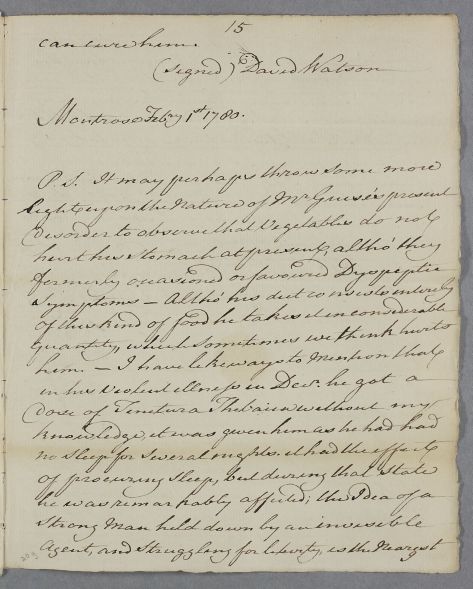 15
can cure him.
(signed) David Watson
Montrose Febry 1st 1780.
P.S. It may perhaps throw some more
light upon the Nature of Mr Guise's present
disorder to observe that Vegetables do not
hurt his stomach at present, altho' they
formerly occasioned or favoured Dyspeptic
Symptoms — Altho' his diet consists entirely
of this kind of food he takes it in considerable
quantity, which sometimes we think hurts
him. — I have likeways to mention that
in his violent illness in Decr. he got a
dose of Tinctura Thebaica without my
knowledge, it was given him as he had had
no sleep for several nights. it had the effect
of procuring sleep, but during that State
he was remarkably affected; the Idea of a
Strong Man held down by an invisible
Agent, and struggling for liberty, is the nearest